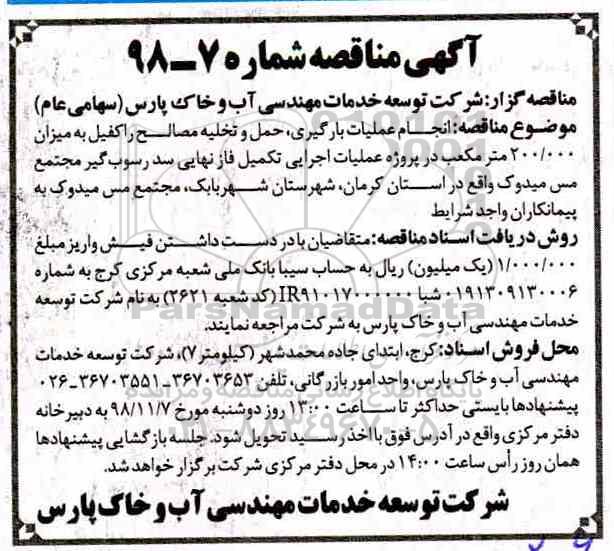 آگهی مناقصه شماره ۷ـ۹۸
مناقصه گزار: شرکت توسعه خدمات مهندسی آب و خاک پارس (سهامی عام)
موضوع مناقصه: انجام عملیات بارگیری، حمل و تخلیه مصالح راکفیل به میزان
۲۰۰/۰۰۰ متر مکعب در پروژه عملیات اجرایی تکمیل فاز نهایی سد رسوب گیر مجتمع
مس میدوک واقع در استان کرمان، شهرستان شهربابک، مجتمع مس میدوک به
پیمانکاران واجد شرایط
روش دریافت اسناد مناقصه: متقاضیان با در دست داشتن فیش واریز مبلغ
۱/۰۰۰/۰۰۰ (یک میلیون) ریال به حساب سیبا بانک ملی شعبه مرکزی کرج به شماره
۰۱۹۱۳۰۹۱۳۰۰۰۶ شبا IR۹۱۰۱۷۰۰۰۰۰۰۰ (کد شعبه ۲۶۲۱) به نام شرکت توسعه
خدمات مهندسی آب و خاک پارس به شرکت مراجعه نمایند.
محل فروش اسناد: کرج، ابتدای جاده محمدشهر (کیلومتر ۷)، شرکت توسعه خدمات
مهندسی آب و خاک پارس، واحد امور بازرگانی، تلفن ۳۶۷۰۳۶۵۳-۳۶۷۰۳۵۵۱-۰۲۶
پیشنهادها بایستی حداکثر تا ساعت ۱۳:۰۰ روز دوشنبه مورخ ۹۸/۱۱/۷ به دبیرخانه
دفتر مرکزی واقع در آدرس فوق با اخذ رسید تحویل شود. جلسه بازگشایی پیشنهادها
همان روز رأس ساعت ۱۴:۰۰ در محل دفتر مرکزی شرکت برگزار خواهد شد.
شرکت توسعه خدمات مهندسی آب و خاک پارس
ParsNamadData